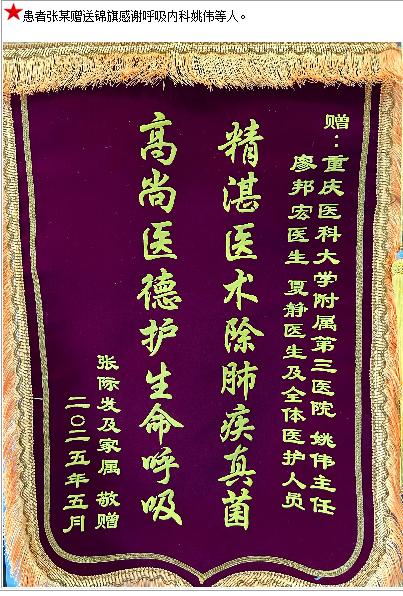 患者张某赠送锦旗感谢呼吸内科姚伟等人。
赠：重庆医科大学附属第三医院 姚伟主任
廖邦宏医生 夏静医生及全体医护人员
精湛医术除肺疾真菌
高尚医德护生命呼吸
张际发及家属 敬赠
二〇二五年五月